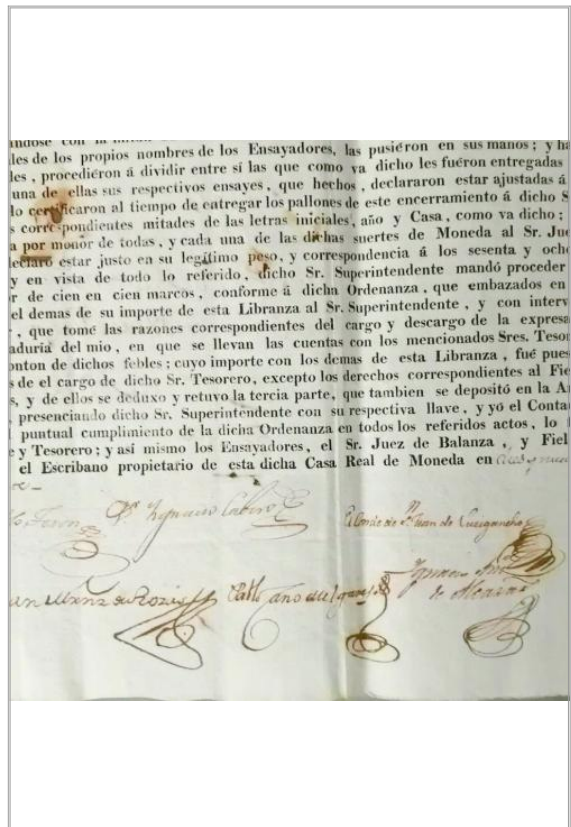 indose con la mitad
les de los propios nombres de los Ensayadores, las pusiéron en sus manos; y ha
les, procediéron á dividir entre sí las que como va dicho les fuéron entregadas
una de ellas sus respectivos ensayes, que hechos, declararon estar ajustadas á
lo certificaron al tiempo de entregar los pallones de este encerramiento á dicho S
s correspondientes mitades de las letras iniciales, año y Casa, como va dicho;
a por monor de todas, y cada una de las dichas suertes de Moneda al Sr. Jue
declaró estar justo en su legítimo peso, y correspondencia á los sesenta y ocho
y en vista de todo lo referido, dicho Sr. Superintendente mandó proceder
r de cien en cien marcos, conforme á dicha Ordenanza, que embazados en
el demas de su importe de esta Libranza al Sr. Superintendente, y con interv
, que tomé las razones correspondientes del cargo y descargo de la expresa
aduría del mio, en que se llevan las cuentas con los mencionados Sres. Tesor
onton de dichos febles; cuyo importe con los demas de esta Libranza, fué pues
s de el cargo de dicho Sr. Tesorero, excepto los derechos correspondientes al Fie
s, y de ellos se deduxo y retuvo la tercia parte, que tambien se depositó en la A
, presenciando dicho Sr. Superintendente con su respectiva llave, y yó el Conta
l puntual cumplimiento de la dicha Ordenanza en todos los referidos actos, lo
e y Tesorero; y así mismo los Ensayadores, el Sr. Juez de Balanza, y Fiel
el Escribano propietario de esta dicha Casa Real de Moneda en
Ygnacio Cabero
El Conde de Sn. Juan de Lurigancho
Pablo Cano